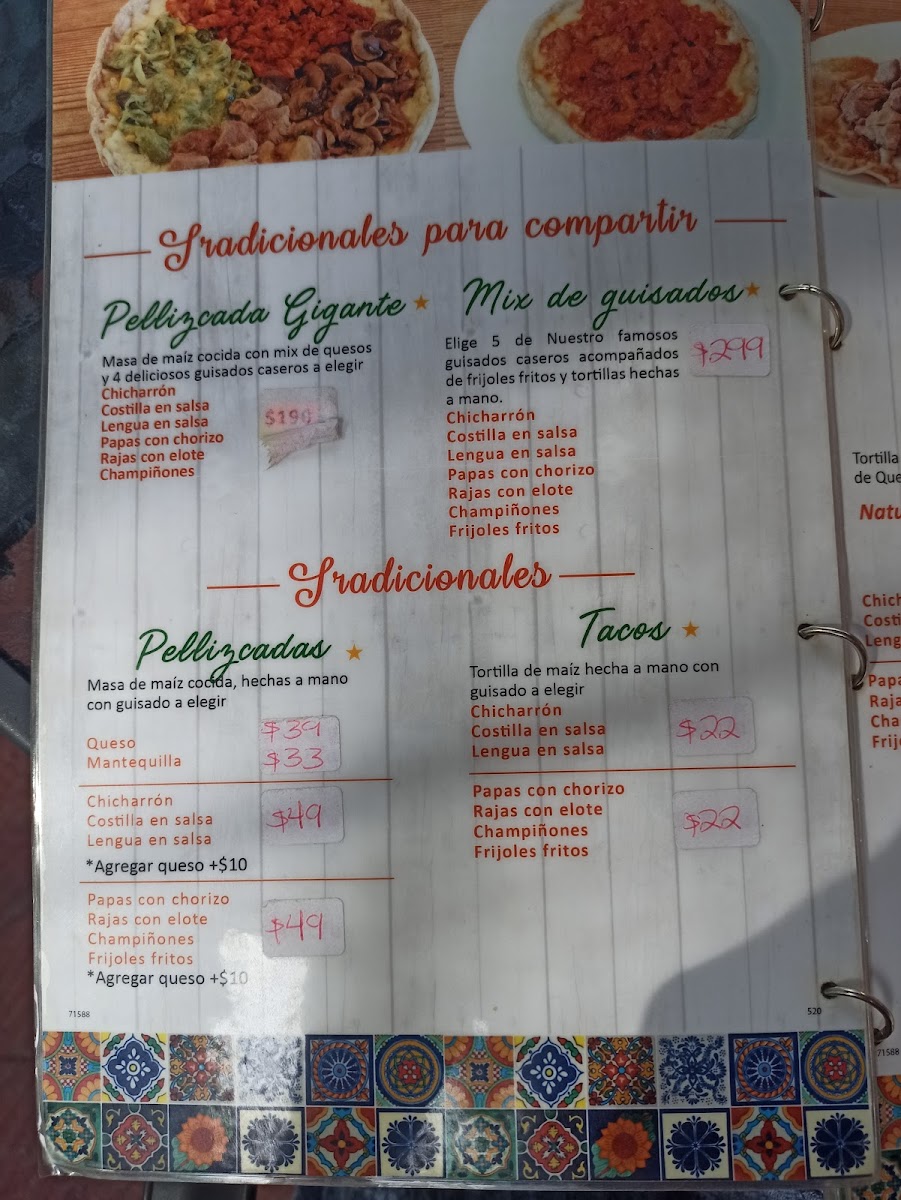 Tradicionales para compartir
Pellizcada Gigante
Masa de maíz cocida con mix de quesos
y 4 deliciosos guisados caseros a elegir
Chicharrón
Costilla en salsa
Lengua en salsa
Papas con chorizo
Rajas con elote
Champiñones
Mix de guisados
Elige 5 de Nuestro famosos
guisados caseros acompañados
de frijoles fritos y tortillas hechas
a mano.
$299
Chicharrón
Costilla en salsa
Lengua en salsa
Papas con chorizo
Rajas con elote
Champiñones
Frijoles fritos
Tradicionales
Pellizcadas
Masa de maíz cocida, hechas a mano
con guisado a elegir
Queso $39
Mantequilla $33
Chicharrón
Costilla en salsa $49
Lengua en salsa
*Agregar queso +$10
Papas con chorizo
Rajas con elote $49
Champiñones
Frijoles fritos
*Agregar queso +$10
Tacos
Tortilla de maíz hecha a mano con
guisado a elegir
Chicharrón
Costilla en salsa $22
Lengua en salsa
Papas con chorizo
Rajas con elote
Champiñones $22
Frijoles fritos
71588
520
Tortilla
de Que
Natu
Chich
Costi
Leng
Papa
Raja
Cha
Frij
71588